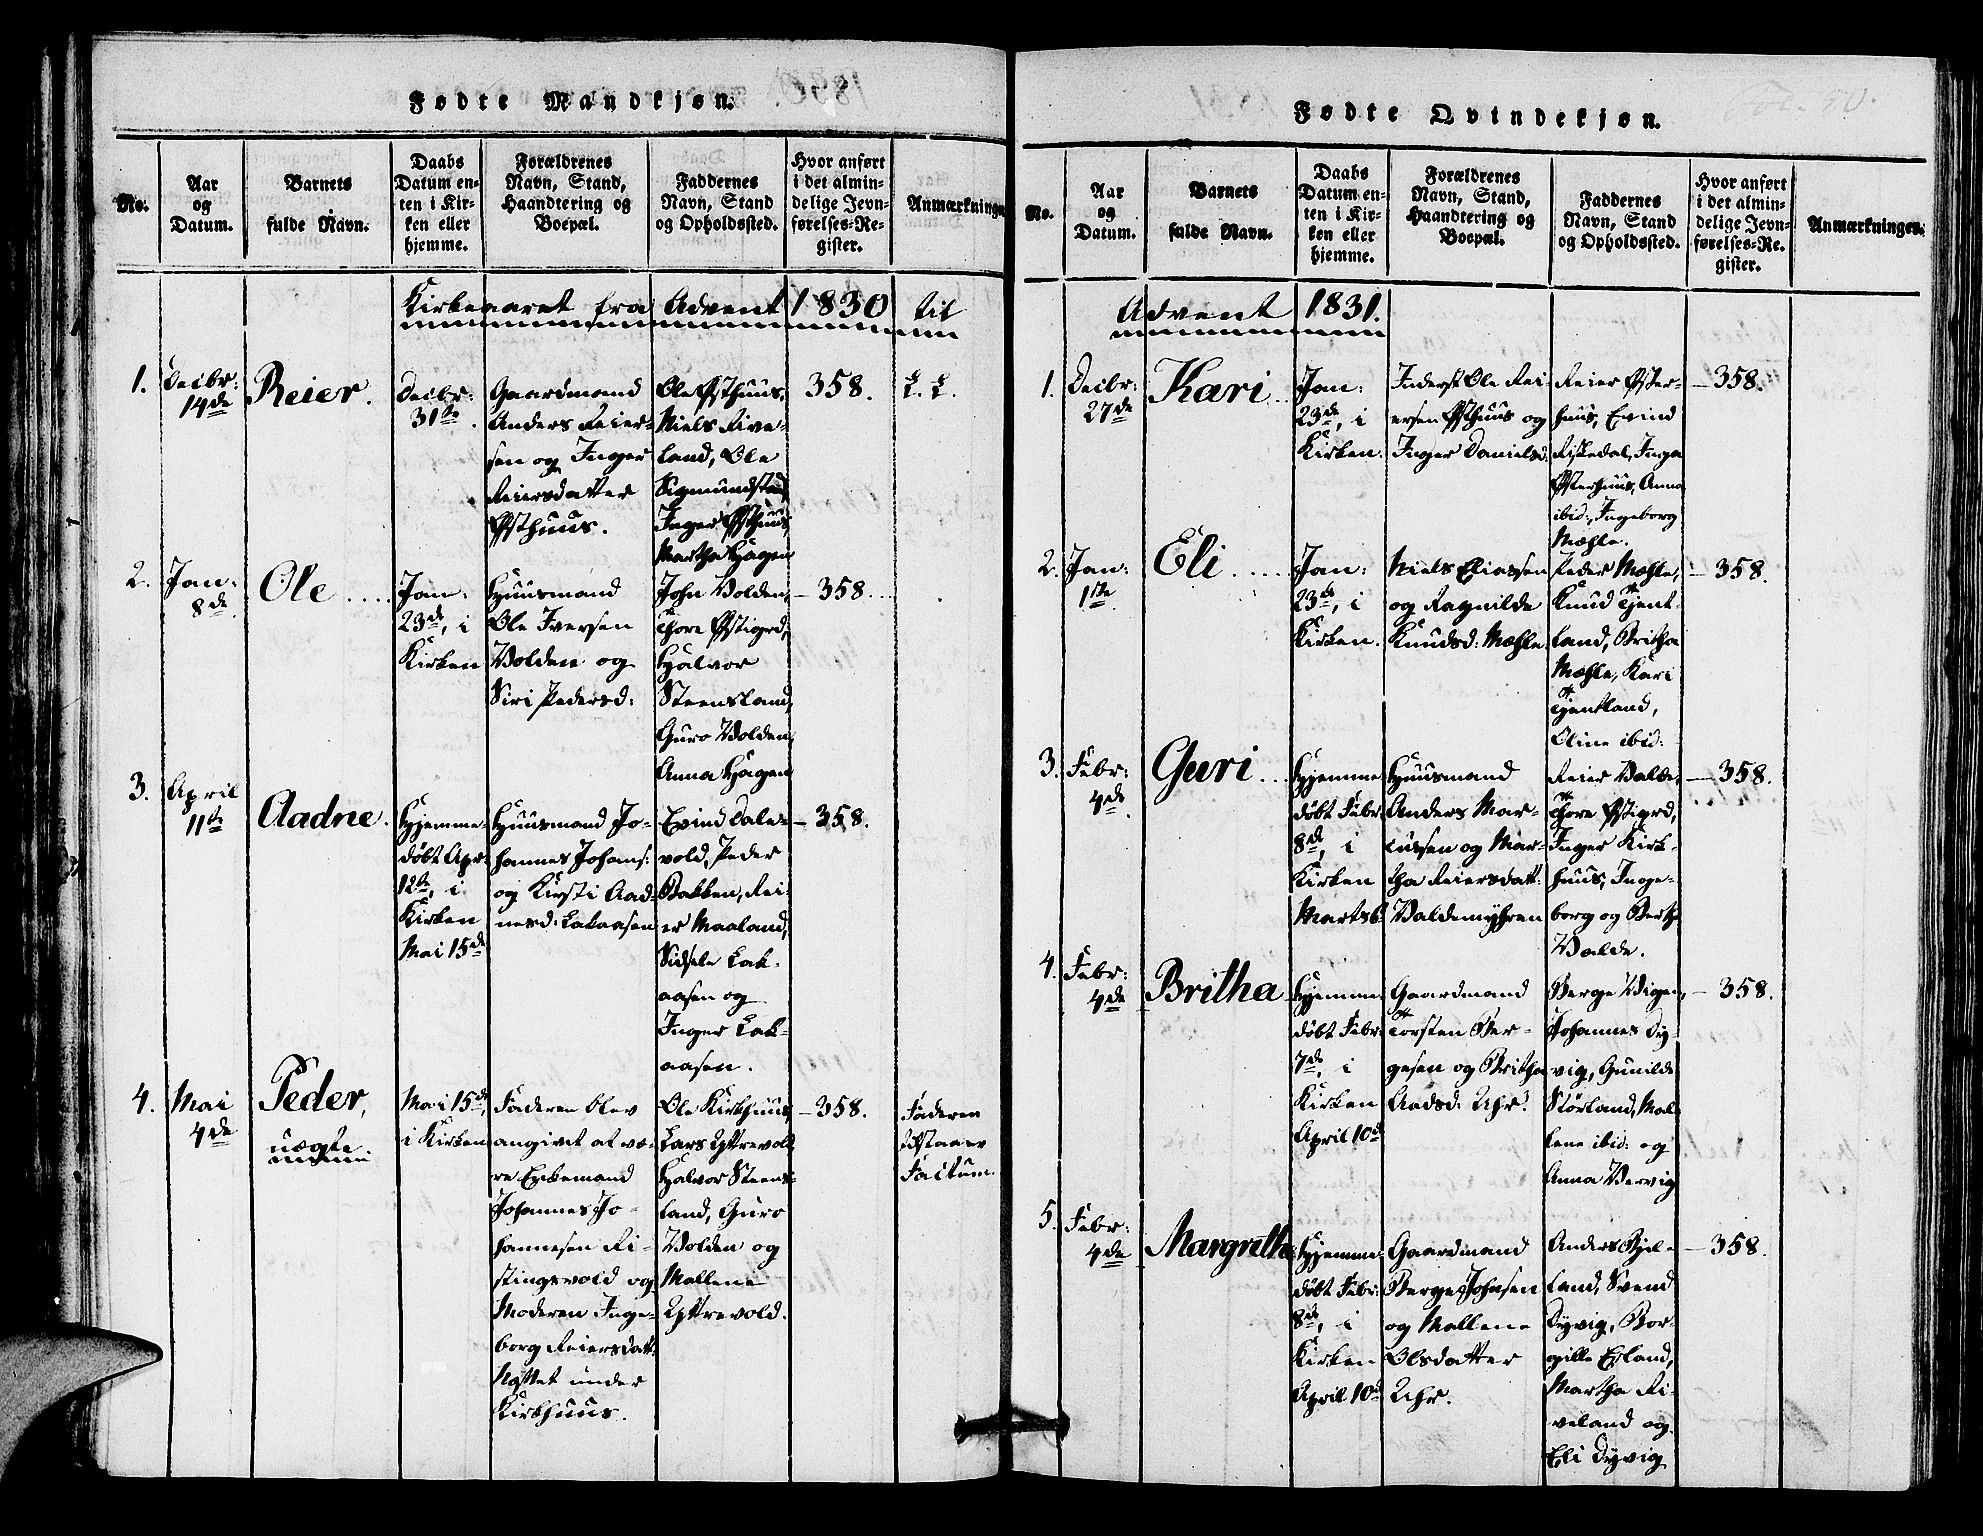 Fødte Mandkjøn.
No.
Aar
og
Datum.
Barnets
fulde Navn.
Daabs
Datum en-
ten i Kir-
ken eller
hjemme.
Forældrenes
Navn, Stand,
Haandtering og
Boepæl.
Faddernes
Navn, Stand
og Opholdssted.
Hvor anført
i det almin-
delige Jevn-
førelses-Re-
gister.
Anmærkninger
Kirkeaaret fra Advent 1830 til
1.
Decbr:
14de
Reier.
Decbr:
31te
Gaardmand
Anders Reier-
sen og Inger
Reiersdatter
Østhuus.
Ole Østhuus,
Niels Rive-
land, Ole
Sigmundstad,
Inger Østhuus,
Martha Hagen
358.
2.
Jan:
8de
Ole
Jan:
23de, i
Kirken
Huusmand
Ole Iversen
Volden og
Siri Pedersd:
John Volden,
Thore Østigrd,
Halvor
Steensland,
Guro Volden,
Anna Hagen
358.
3.
April
11te
Aadne.
Hjemme-
døbt Apr:
12te, i
Kirken
Mai 15de
Huusmand Jo-
hannes Johans:
og Kirsti Aad-
nesd: Lakaasen
Evind Dale-
vold, Peder
Bakken, Rei-
er Maaland,
Sidsele Lak-
aasen og
Inger Lak-
aasen.
358.
4.
Mai
4de
Peder,
uægte
Mai 15de,
i Kirken
Faderen blev
angivet at væ-
re Enkemand
Johannes Jo-
hannesen Ri-
stingsvold og
Moderen Inge-
borg Reiersdatt:
Høttet under
Kirkhuus.
Ole Kirkhuus,
Lars Yttrevold
Halvor Steens-
land, Guro
Volden og
Mallene
Yttrevold.
358.
Faderen
tilstaaer
Factum.
Fødte Qvindekjøn.
Fol. 50.
No.
Aar
og
Datum.
Barnets
fulde Navn.
Daabs
Datum en-
ten i Kir-
ken eller
hjemme.
Forældrenes
Navn, Stand,
Haandtering og
Boepæl.
Faddernes
Navn, Stand
og Opholdssted.
Hvor anført
i det almin-
delige Jevn-
førelses-Re-
gister.
Anmærkninger.
Advent 1831.
1.
Decbr:
27de
Kari
Jan:
23de, i
Kirken.
Inderst Ole Rei-
ersen Østhuus og
Inger Danielsd.
Reier Øster-
huus, Evind
Riskedal, Inga
Østerhuus, Anna
ibid:, Ingeborg
Mæhle.
358.
2.
Jan:
1ste
Eli
Jan:
23de, i
Kirken.
Niels Eliassen
og Ragnilde
Knudsd: Mæhle
Peder Mæhle,
Knud Tjent-
land, Britha
Mæhle, Kari
Tjentland,
Oline ibid:
358.
3.
Febr:
4de
Guri
Hjemme
døbt Febr:
8de, i
Kirken
Marts 6
Huusmand
Anders Mar-
cussen og Mar-
tha Reiersdatt:
Valdemyhren
Reier Valde,
Thore Østigrd,
Inger Kirk-
huus, Inge-
borg og Berthe
Valde.
358.
4.
Febr:
4de
Britha
Hjemme
døbt Febr:
7de, i
Kirken
April 10de
Gaardmand
Torsten Ber-
gesen og Britha
Aadsd: Uhr.
Berge Vigen,
Johannes Dy-
vig, Gunilde
Størland, Mal-
lene ibid: og
Anna Vervig
358.
5.
Febr:
4de
Margrethe
Hjemme-
døbt Febr:
8de, i
Kirken
April 10de
Gaardmand
Berge Johnsen
og Mallene
Olsdatter
Uhr.
Anders Bjel-
land, Svend
Dyvig, Bor-
gille Erland,
Martha Ri-
veland og
Eli Dyvig
358.